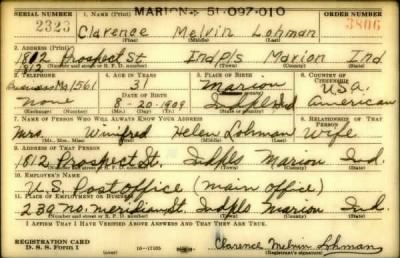 MARION-5 51-097-010
SERIAL NUMBER 1. NAME (Print) ORDER NUMBER
2323 Clarence Melvin Lohman 3806
(First) (Middle) (Last)
2. ADDRESS (Print)
1812 Prospect St Indpls Marion Ind
1812
(Number and street or R. F. D. number) (Town) (County) (State)
3. TELEPHONE 4. AGE IN YEARS 5. PLACE OF BIRTH 6. COUNTRY OF CITIZENSHIP
Business Ma 1561 31 Marion U.S.A.
DATE OF BIRTH
None 8-20-1909 Indpls Ind American
7. NAME OF PERSON WHO WILL ALWAYS KNOW YOUR ADDRESS 8. RELATIONSHIP OF THAT PERSON
Mrs. Winifred Helen Lohman Wife
(Mr., Mrs., Miss) (First) (Middle) (Last)
9. ADDRESS OF THAT PERSON
1812 Prospect St. Indpls Marion Ind.
(Number and street or R. F. D. number) (Town) (County) (State)
10. EMPLOYER'S NAME
U.S. Post office (main office)
11. PLACE OF EMPLOYMENT OR BUSINESS
239 No. meridian St. Indpls Marion Ind.
(Number and street or R. F. D. number) (Town) (County) (State)
I AFFIRM THAT I HAVE VERIFIED ABOVE ANSWERS AND THAT THEY ARE TRUE.
REGISTRATION CARD
D. S. S. Form 1 16-17105 Clarence Melvin Lohman
(Registrant's signature)